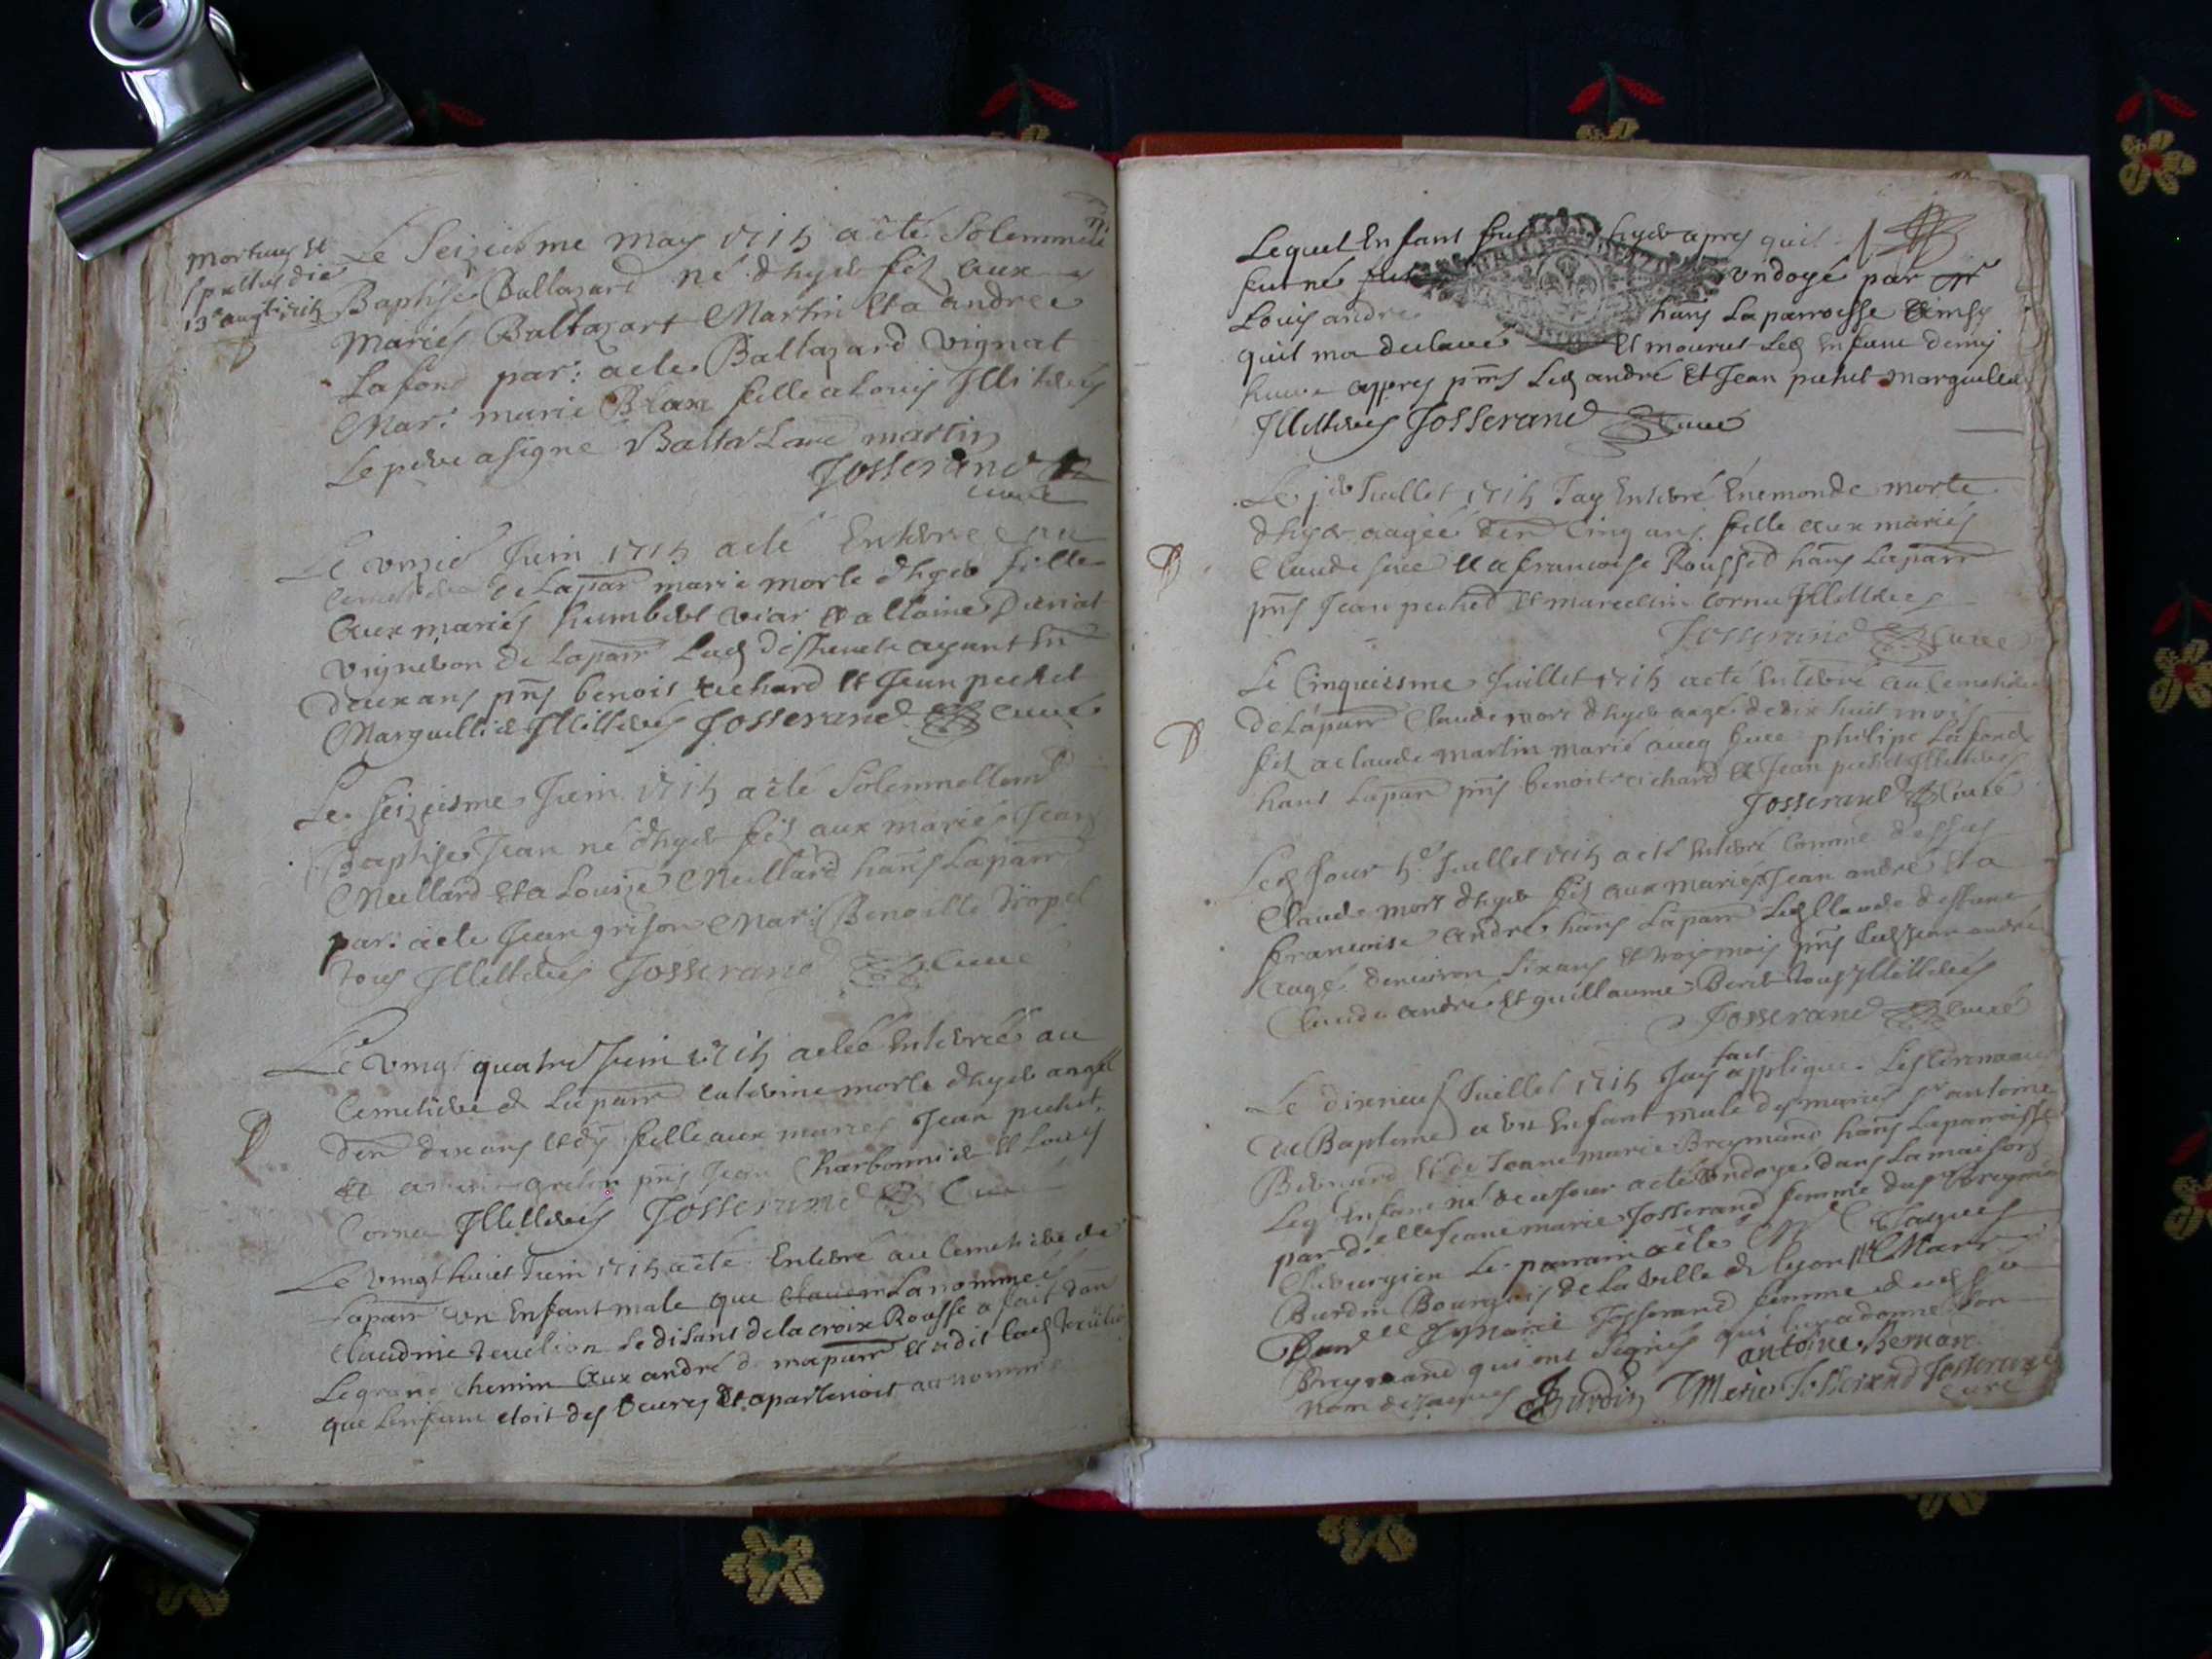 mortuus et
sepultus die
13e augti 1715
Le Seiziesme may 1715 a été Solemnelt
Baptisé Baltazard né d'hyer fils aux
Mariés Baltazart Martin et a andree
Lafond par: a eté Baltazard vignat
Mar: marie fille a Louis Illiterés
Le pere a signé Baltazard martin
Josserand
curé
Le unzie Juin 1715 a eté Enterre au
cemetiere de La parr marie morte d'hyer fille
aux mariés humbert viar et a
Vigneron de La parr Lad deffunte ayant En
deux ans pnts benoit richard et Jean pechet
Marguillier Illiterés Josserand curé
Le Seiziesme Juin 1715 a eté Solemnellemt
Baptisé Jean né d'hyer fils aux mariés Jean
Meillard et a Louise Meillard hans La parr
par: a eté Jean grison Mar: Benoitte
tous Illiterés Josserand curé
Le vingt quatre Juin 1715 a eté Enterrée au
Cemetiere de La parr Caterine morte d'hyer aagée
d'en dix ans et dy fille aux mariés Jean pechet
et a pnts Jean Charbonnier et Louis
Cornu Illiterés Josserand Curé
Le vingt huict Juin 1715 a eté Enterré au Cemetiere de
La parr un Enfant male que La nommée
Claudine se disant de la croix Rousse a fait dans
Le grand chemin aux andré de ma parr et a dit lad
que L'enfant etoit des et apartenoit au nommé
Lequel Enfant fut hyer apres quil
fut né fut ondoyé par
Louis andré hans La parroisse ainsy
quil ma declaré et mourut Led Enfant demi
heure appres pnts Led andré et Jean pechet marguillier
Illiterés Josserand Curé
Le 1er Juillet 1715 Jay Enterré Enemonde morte
d'hyer aagée d'en Cinq ans fille aux mariés
Claude et a francoise Rousset hans La parr
pnts Jean pechet et marcelin cornu Illiterés
Josserand Curé
Le Cinquiesme Juillet 1715 a eté Enterré au Cemetiere
de La parr Claude mort d'hyer aagé de dix huit mois
fils a claude martin marié avec philipe Lafond
hans La parr pnts benoit richard et Jean pechet Illiterés
Josserand Curé
Led Jour 5e Juillet 1715 a eté Enterré Comme dessus
Claude mort d'hyer fils aux mariés Jean andré et a
francoise andré hans La parr Led Claude deffunt
aagé d'environ Six ans et trois mois pnts Led Jean andré
Claude andré et guillaume tous Illiterés
Josserand Curé
Le dixneuf Juillet 1715 Jay fait applique Les ceremonies
de Baptême a un Enfant male des mariés Sr antoine
Bernard et de Jeanne marie Breymand hans La parroisse
Leq Enfant né de ce Jour a eté ondoyé dans La maison
par delle Jeane marie Josserand femme du Sr Breymand
Chirurgien Le parrain a eté Mr Jaques
Burdin Bourgeois de La ville de Lyon et Marr
Damelle J Marie Josserand femme dud Sr
Breymand qui ont Signés qui luy a donné Son
nom de Jaques antoine Bernard
Burdin J Marie Josserand Josserand
curé